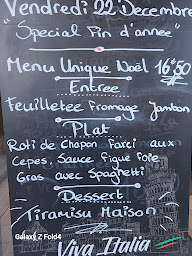 Vendredi 22 Decembre
"Special Fin d'année"
Menu Unique Noël 16€50
Entree
Feuilletee Fromage Jambon
Plat
Roti de Chapon Farci aux
cepes, Sauce Figue Foie
Gras avec Spaghetti
Dessert
Tiramisu Maison
Viva Italia
Galaxy Z Fold4